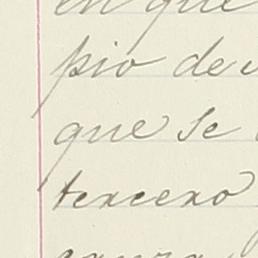 en que
pio de
que se
tercero